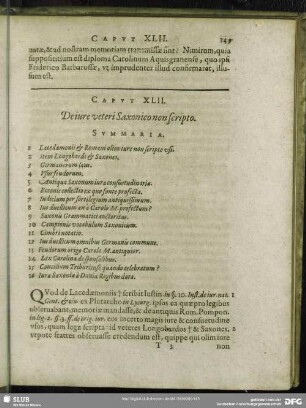 CAPVT XLII. 149
natæ, & ad nostram memoriam transmissæ sint? Nimirum, quia
supposititium est diploma Carolinum Aquisgranense, quo ipsi
Friderico Barbarossæ, vt imprudenter illud confirmaret, illu-
sum est.
CAPVT XLII.
De iure veteri Saxonico non scripto.
SVMMARIA.
1 Lacedæmonii & Romani olim iure non scripto vsi.
2 Item Longobardi & Saxones.
3 Germanorum iam.
4 Vsus feudorum.
5 Antiqua Saxonum iura consuetudinaria.
6 collectio ex quo fonte profecta.
7 Iudicium per sortilegium antiquissimum.
8 Ius duellicum an à Carolo M. profectum?
9 Saxonis Grammatici auctoritas.
10 vocabulum Saxonicum.
11 Cimbri
12 Ius duellicum omnibus Germanis commune.
13 Feudorum origo Carolo M. antiquior.
14 Lex Carolina de sponsalibus.
15 Concilium Triburiense quando celebratum?
16 Iura Saxonica à Divisis Regibus data.
QVod de Lacedæmoniis † scribit Iustin. in §. 10. Inst. de iur. nat. 1
Gent. & civ. ex Plutarcho in Lycurg. ipsos ea quæ pro legibus
observabant, memoriæ mandasse, & de antiquis Rom. Pompon.
in leg. 2. §. 3. ff. de orig. iur. eos incerto magis iure & consuetudine
vsos, quam lege scripta: id veteres Longobardos † & Saxones, 2
vtpote scientes obseruasse credendum est, quippe qui olim inte
T 3 non
SLUB
DFG